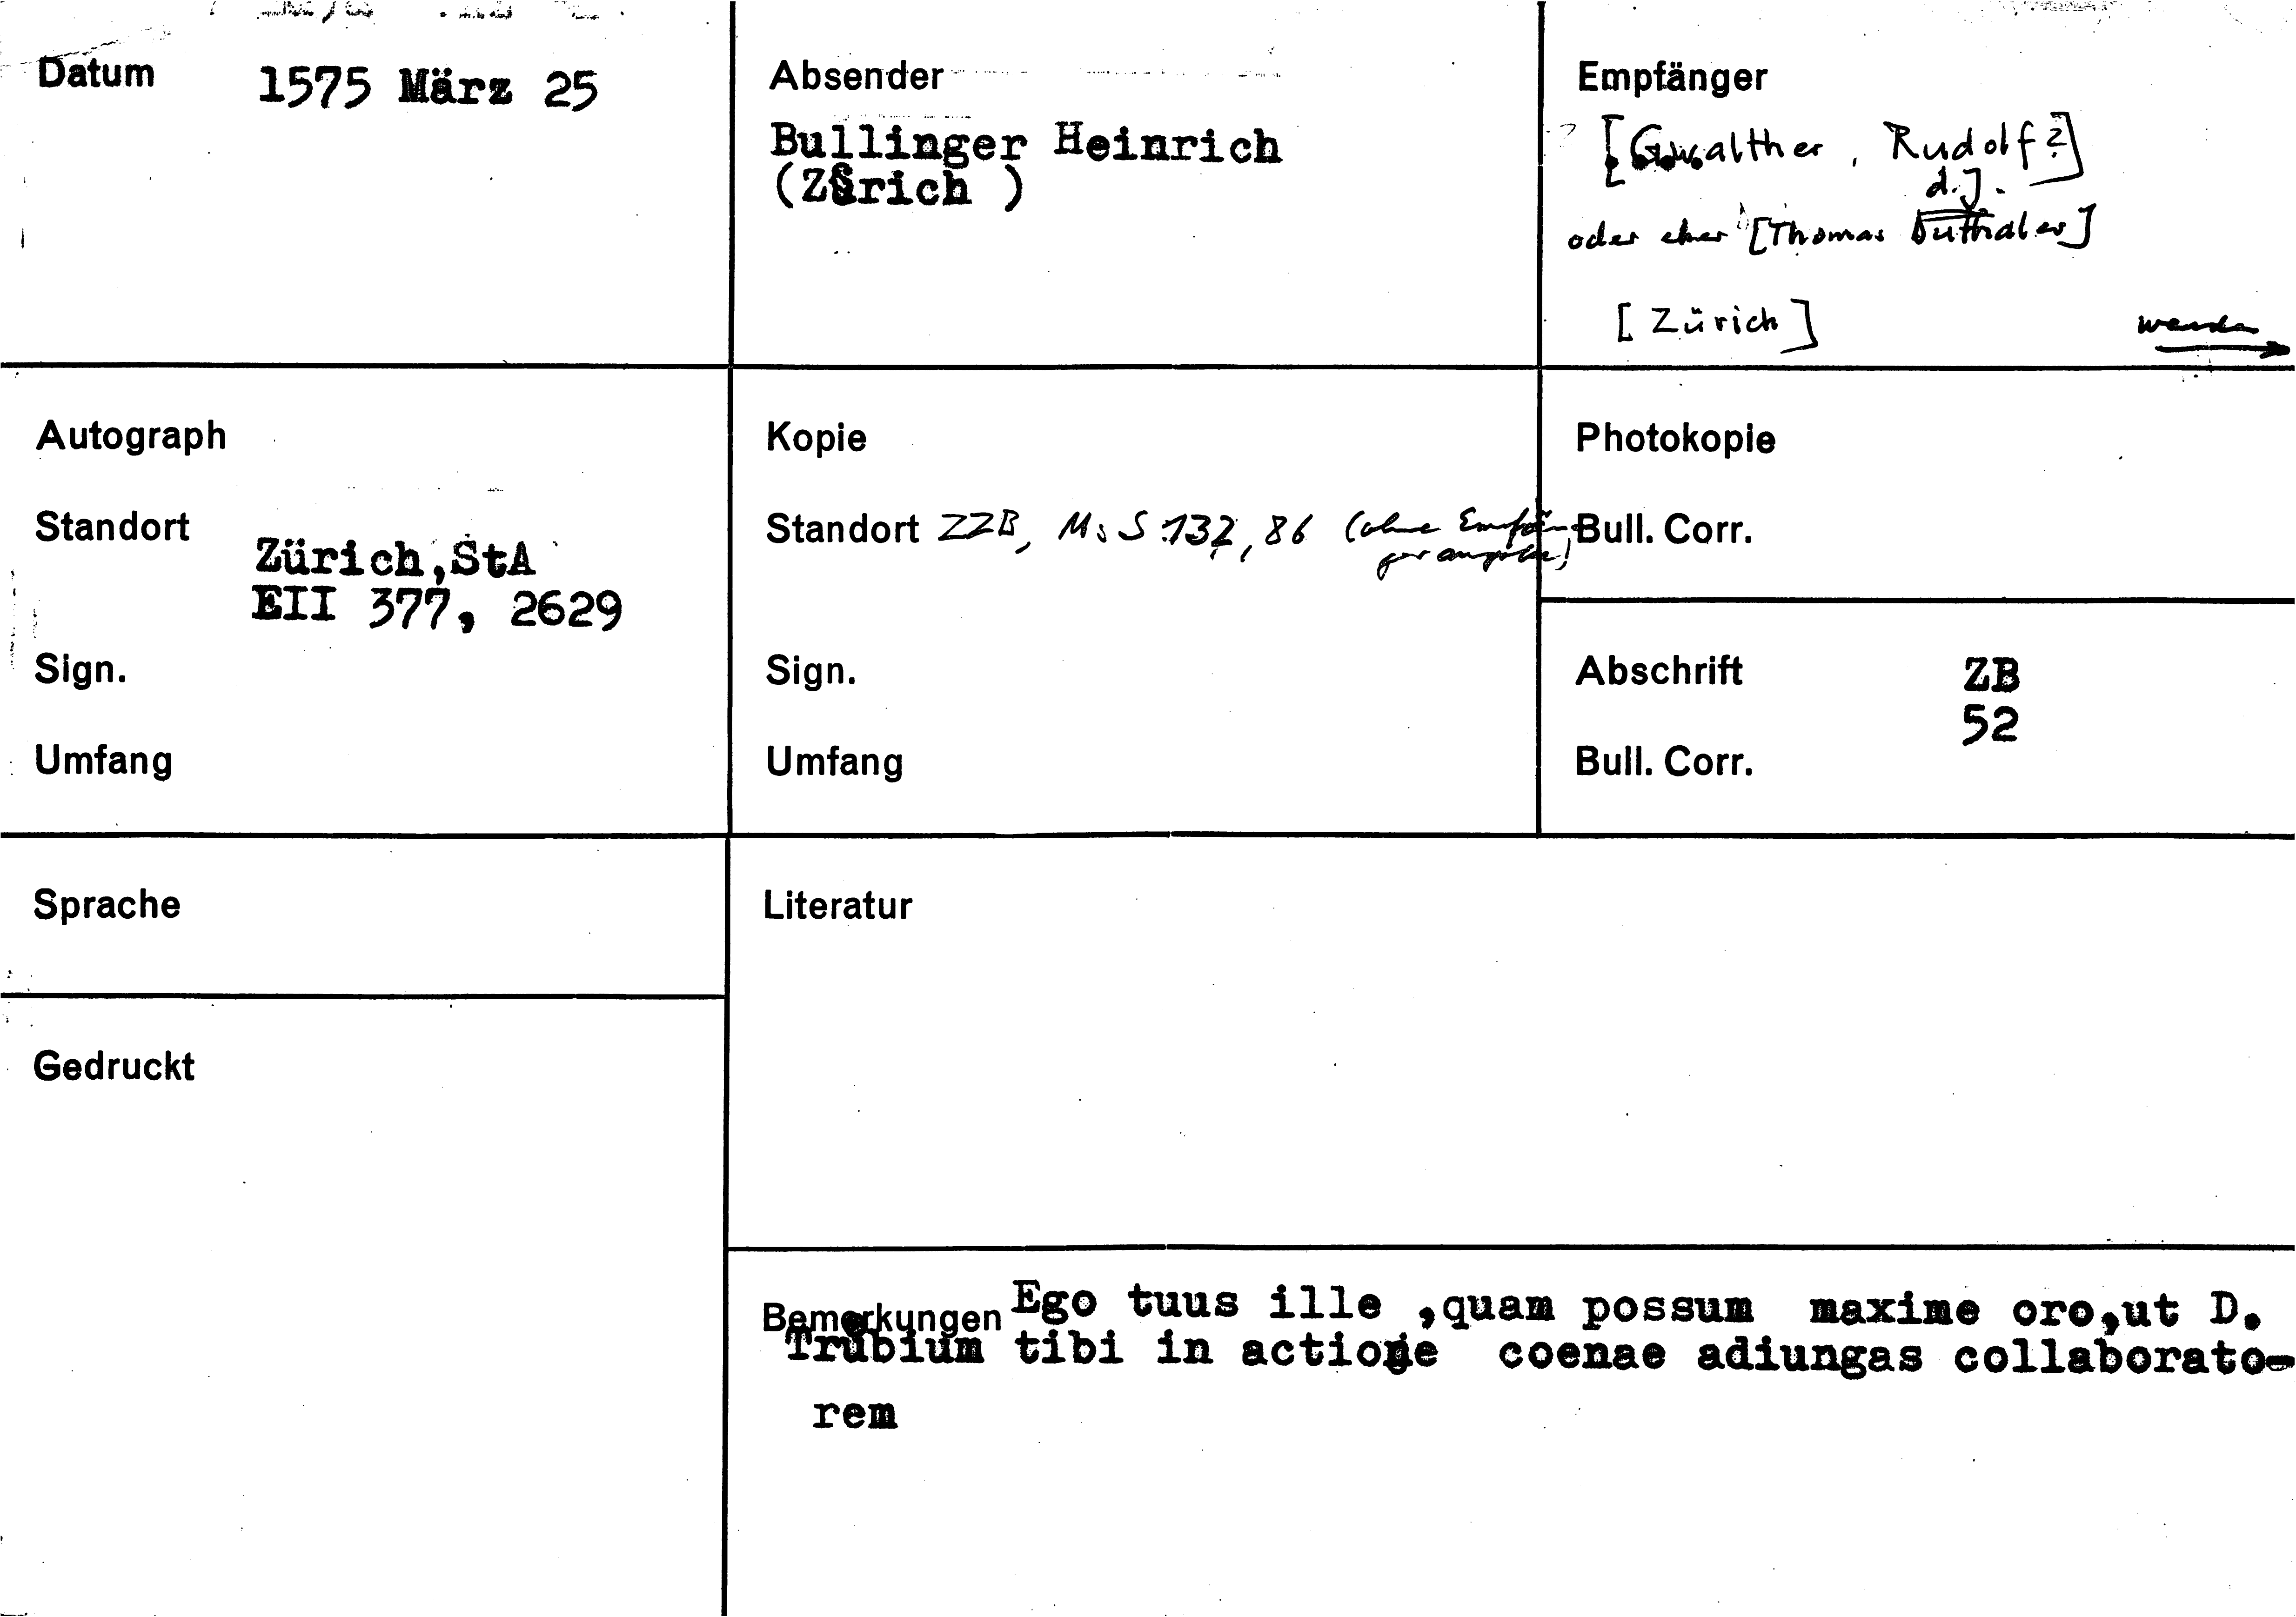 Datum 1575 März 25
Absender
Bullinger Heinrich
(Z§rich )
Empfänger
[Gwalther, Rudolf?]
d.J.
oder eher [Thomas Dutthaler]
[Zürich]
wenden
Autograph
Standort
Zürich,StA
EII 377, 2629
Sign.
Umfang
Kopie
Standort ZZB, Ms S 132, 86 (ohne Empfän-
gerangabe)
Sign.
Umfang
Photokopie
Bull. Corr.
Abschrift ZB
52
Bull. Corr.
Sprache
Gedruckt
Literatur
Bemerkungen Ego tuus ille ,quam possum maxime oro,ut D.
Trubium tibi in actione coenae adiungas collaborato-
rem